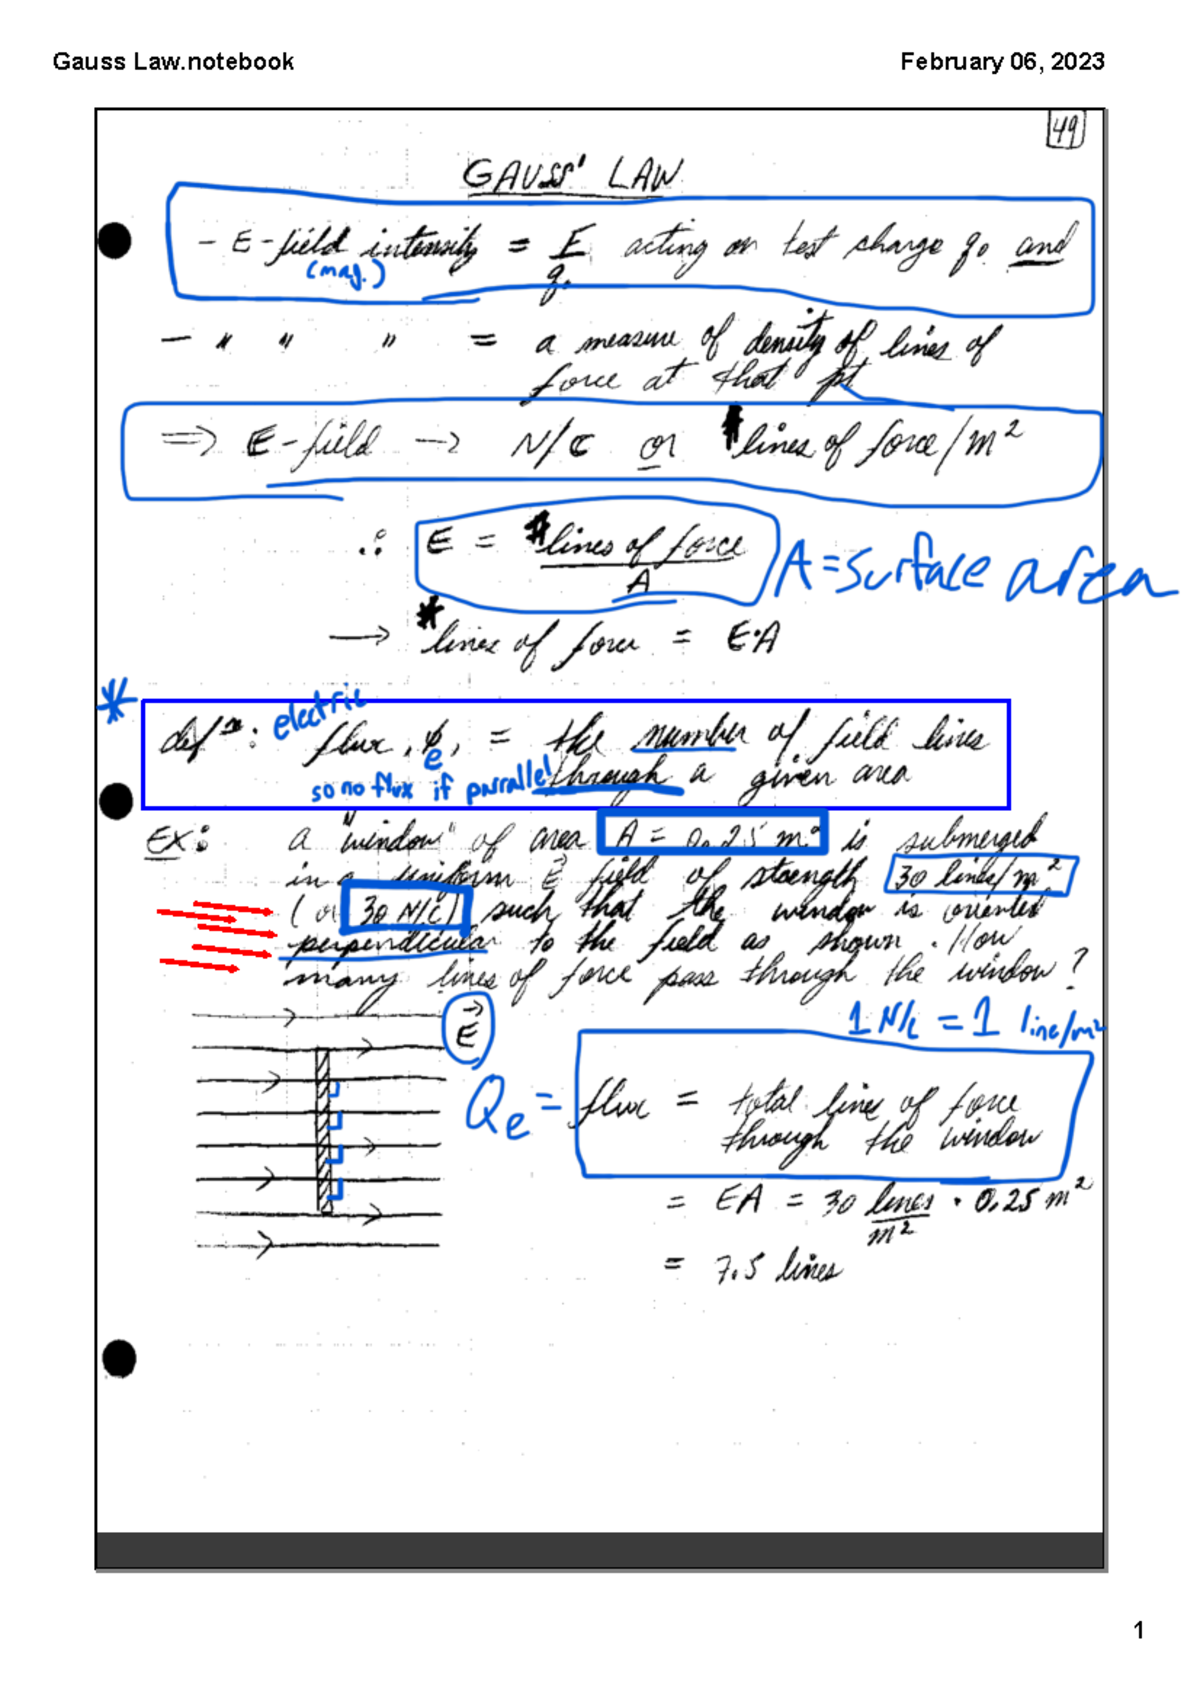 Gauss Law.notebook February 06, 2023
49
GAUSS' LAW
- E-field intensity = F/q₀ acting on test charge q₀ and
(mag.)
- " " " = a measure of density of lines of
force at that pt
⇒ E-field → N/C or # lines of force/m²
∴ E = # lines of force / A
A = surface area
→ # lines of force = E·A
* defⁿ: electric flux, ϕe, = the number of field lines
so no flux if parralel through a given area
EX: a "window" of area A = 0.25 m² is submerged
in a uniform E field of strength 30 lines/m²
(or 30 N/C) such that the window is oriented
perpendicular to the field as shown. How
many lines of force pass through the window?
1 N/C = 1 line/m²
E
Qe = flux = total lines of force
through the window
= EA = 30 lines/m² · 0.25 m²
= 7.5 lines
1